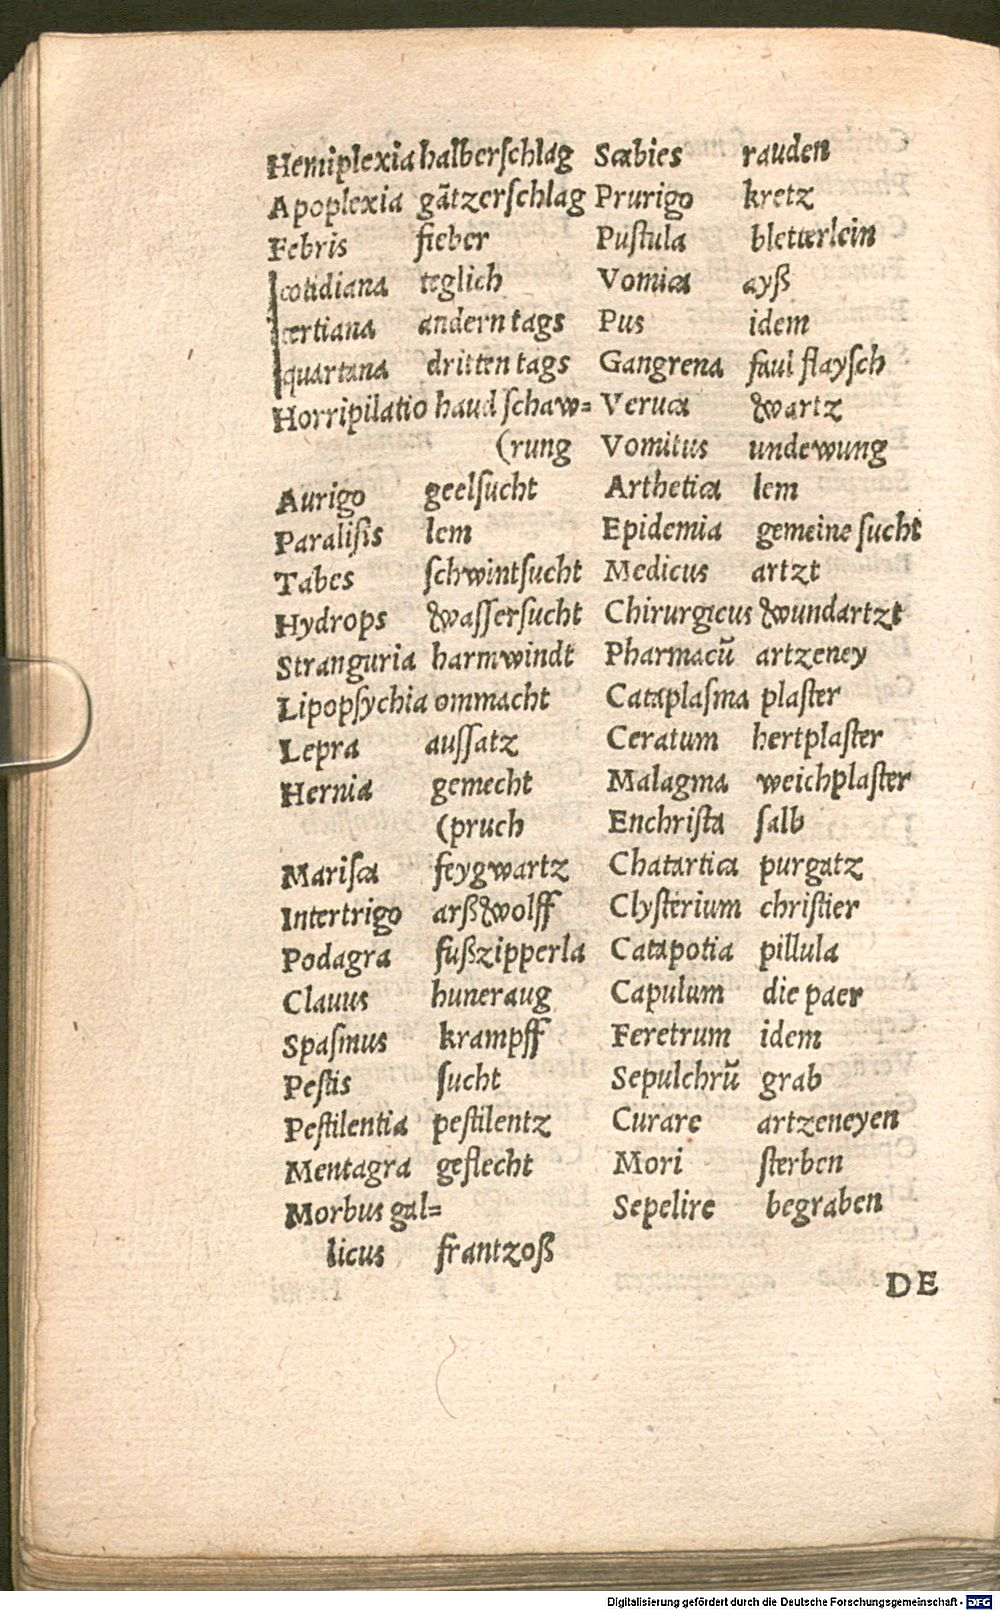 Hemiplexia halberſchlag
Apoplexia gãtzerſchlag
Febris fieber
cotidiana teglich
tertiana andern tags
quartana dritten tags
Horripilatio haud ſchaw=
(rung
Aurigo geelſucht
Paraliſis lem
Tabes ſchwintſucht
Hydrops waſſerſucht
Stranguria harmwindt
Lipopſychia ommacht
Lepra auſſatz
Hernia gemecht
(pruch
Mariſca feygwartz
Intertrigo arßwolff
Podagra fußzipperla
Clauus huneraug
Spaſmus krampff
Peſtis ſucht
Peſtilentia peſtilentz
Mentagra geflecht
Morbus gal=
licus frantzoß
Scabies rauden
Prurigo kretz
Puſtula bletterlein
Vomica ayß
Pus idem
Gangrena faul flayſch
Veruca wartz
Vomitus undewung
Arthetica lem
Epidemia gemeine ſucht
Medicus artzt
Chirurgicus wundartzt
Pharmacũ artzeney
Cataplaſma plaſter
Ceratum hertplaſter
Malagma weichplaſter
Enchriſta ſalb
Chatartica purgatz
Clyſterium chriſtier
Catapotia pillula
Capulum die paer
Feretrum idem
Sepulchrũ grab
Curare artzeneyen
Mori ſterben
Sepelire begraben
DE
Digitalisierung gefördert durch die Deutsche Forschungsgemeinschaft - DFG